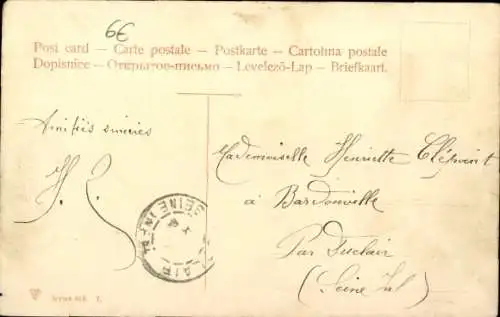 6€
Post card – Carte postale – Postkarte – Cartolina postale
Dopisnice – Открытое-письмо – Levelező-Lap – Briefkaart.
Amitiés sincères
Mademoiselle Henriette Clément
à Bardouville
Par Duclair
(Seine Inf)
SEINE INFRE